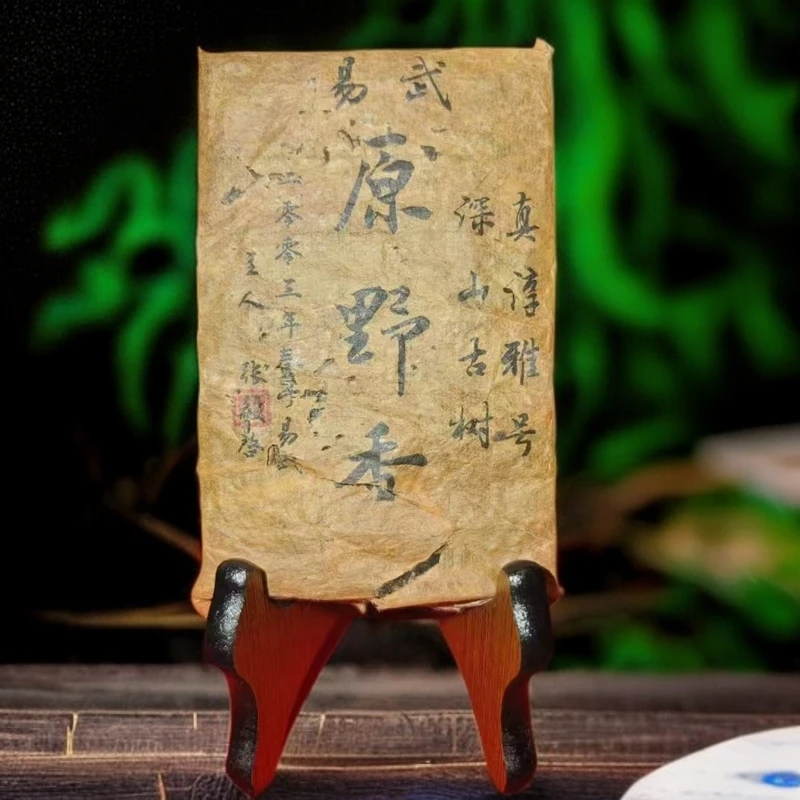 易武
真淳雅号
深山古树
原野香
二零零三年春于易武
主人 张毅启